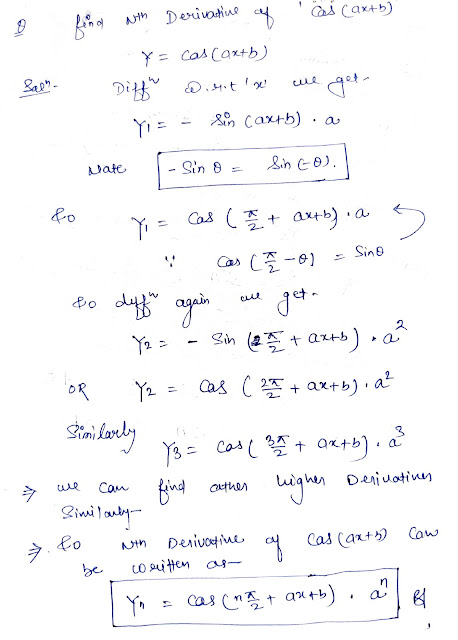 Q find nth Derivative of cos (ax+b)
y = cos (ax+b)
Solⁿ- Diffⁿ w.r.t 'x' we get-
y₁ = - sin (ax+b) . a
Note - Sin θ = Sin (-θ).
So y₁ = cos ( π/2 + ax+b) . a
∵ Cos (π/2 - θ) = Sinθ
So diffⁿ again we get-
y₂ = - Sin (π/2 + ax+b) . a²
OR y₂ = cos ( 2π/2 + ax+b) . a²
Similarly
y₃ = cos ( 3π/2 + ax+b) . a³
⇒ we can find other higher Derivatives
Similarly-
⇒. So nth Derivative of cos (ax+b) can
be written as-
yₙ = cos (nπ/2 + ax+b) . aⁿ